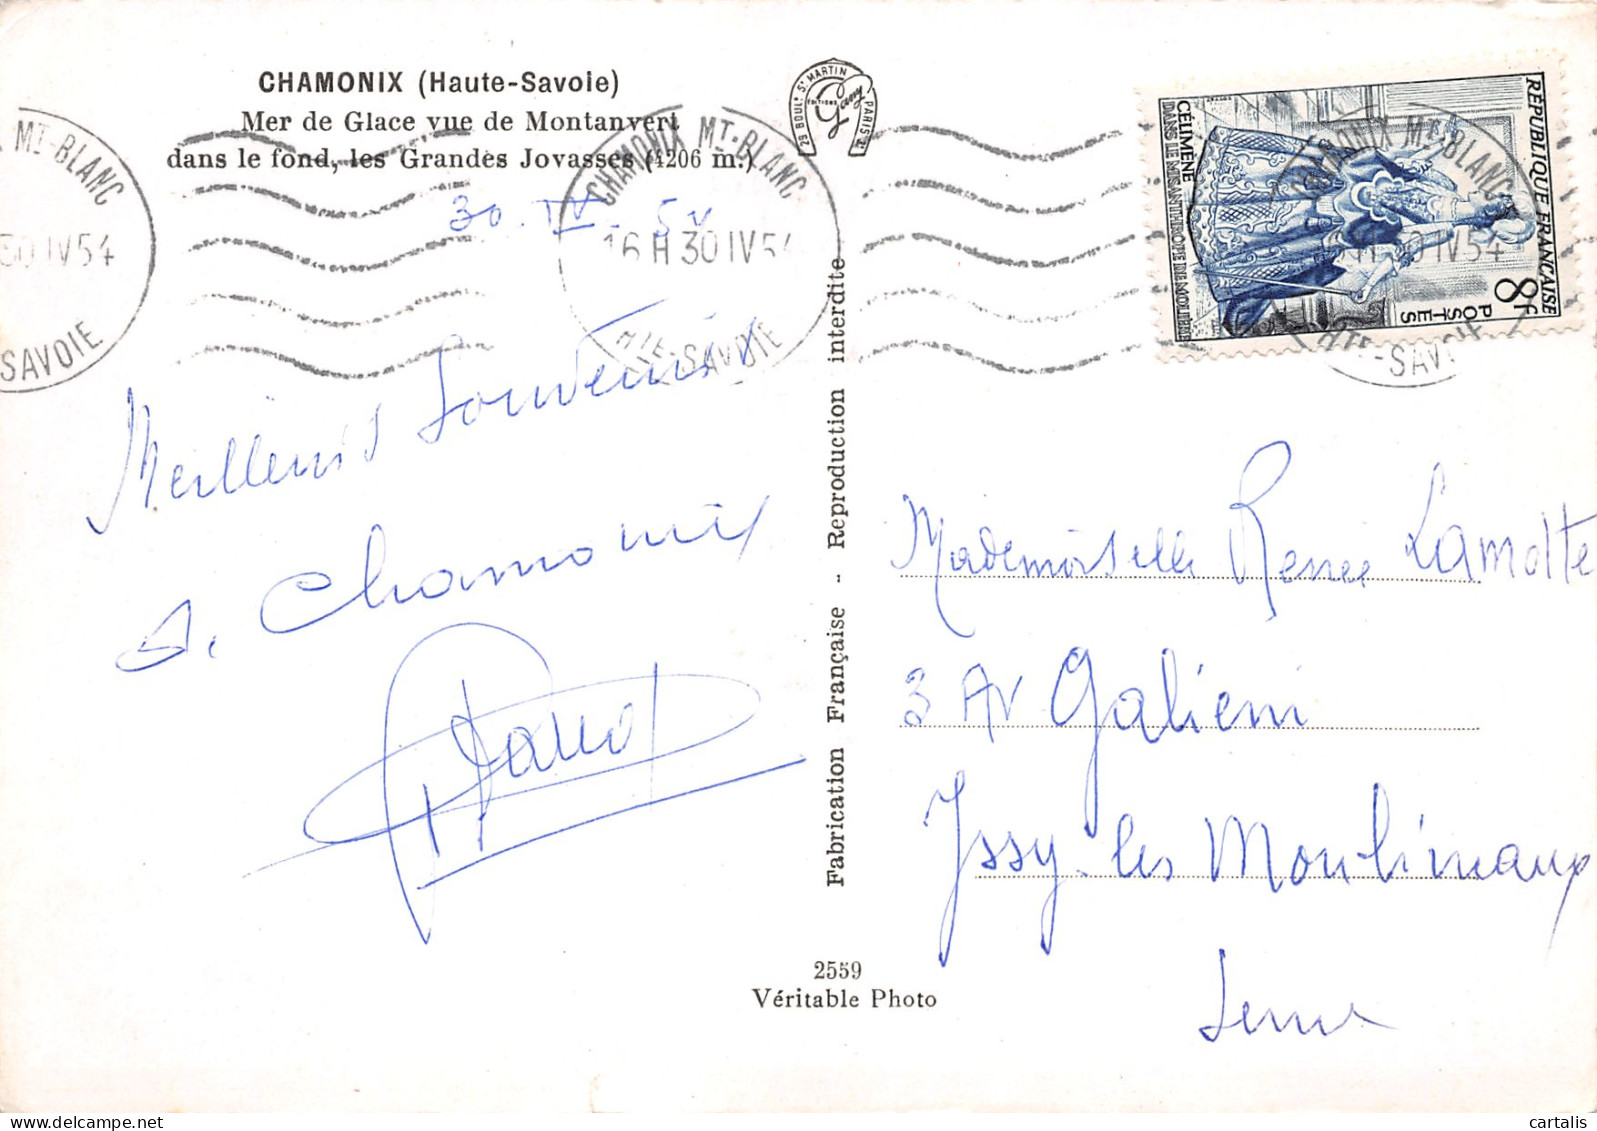 CHAMONIX (Haute-Savoie)
Mer de Glace vue de Montanvert
dans le fond, les Grandes Jovasses (4206 m.)
30 . IV . 54
Meilleurs Souvenirs
de Chamonix
29 BOULd St MARTIN PARIS
EDITIONS
Gany
MT-BLANC
30 IV 54
SAVOIE
CHAMONIX MT-BLANC
16 H 30 IV 54
HTE-SAVOIE
Fabrication Française - Reproduction interdite
RÉPUBLIQUE FRANÇAISE
8F
POSTES
CÉLIMÈNE
DANS LE MISANTHROPE DE MOLIÈRE
CHAMONIX MT-BLANC
30 IV 54
HTE-SAVOIE
Mademoiselle Renee Lamotte
3 Av Galieni
Issy les Moulineaux
Seine
2559
Véritable Photo
cartalis